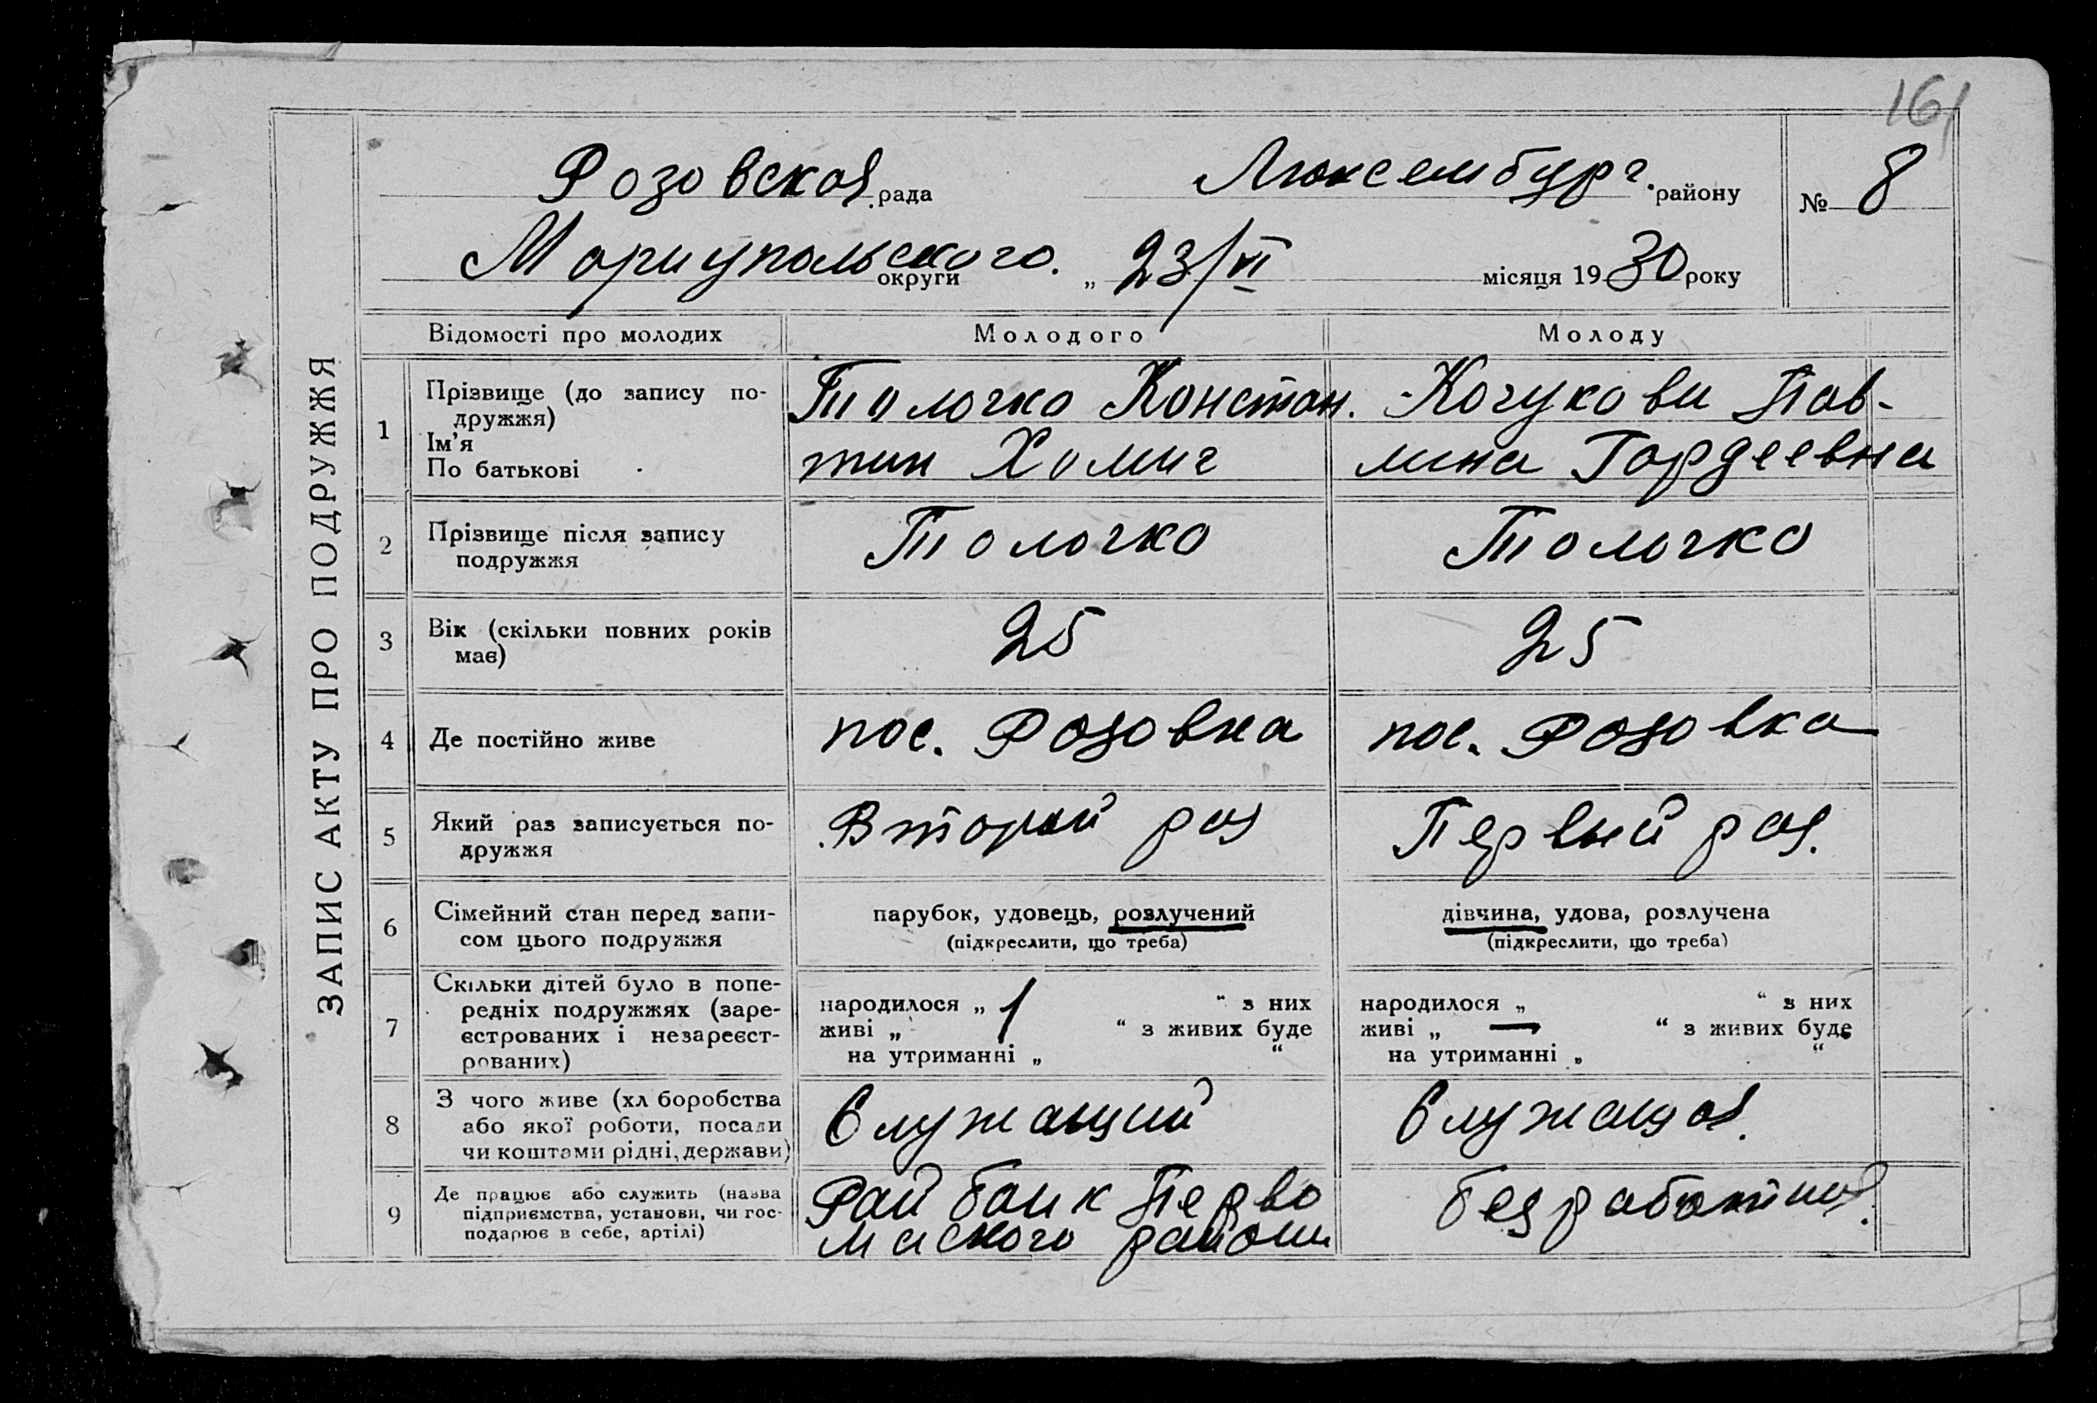 161
Розовская рада Люксембург. району № 8
Мариупольского. округи „ 23/VI місяця 1930 року
ЗАПИС АКТУ ПРО ПОДРУЖЖЯ
Відомості про молодих Молодого Молоду
1 Прізвище (до запису по-
дружжя)
Ім'я
По батькові
Толочко Констан.
тин Хомич
Кочукова Пав-
лина Гордеевна
2 Прізвище після запису
подружжя
Толочко Толочко
3 Вік (скільки повних років
має)
25 25
4 Де постійно живе пос. Розовка пос. Розовка
5 Який раз записується по-
дружжя
Вторый раз Первый раз.
6 Сімейний стан перед запи-
сом цього подружжя
парубок, удовець, розлучений
(підкреслити, що треба)
дівчина, удова, розлучена
(підкреслити, що треба)
7 Скільки дітей було в попе-
редніх подружжях (заре-
єстрованих і незареєст-
рованих)
народилося „ 1 “ з них
живі „ “ з живих буде
на утриманні „ “
народилося „ “ з них
живі „ — “ з живих буде
на утриманні „ “
8 З чого живе (хл боробства
або якої роботи, посади
чи коштами рідні, держави)
Служащий Служащая.
9 Де працює або служить (назва
підприємства, установи, чи гос-
подарює в себе, артілі)
Рай банк Перво
майского района
безработная.